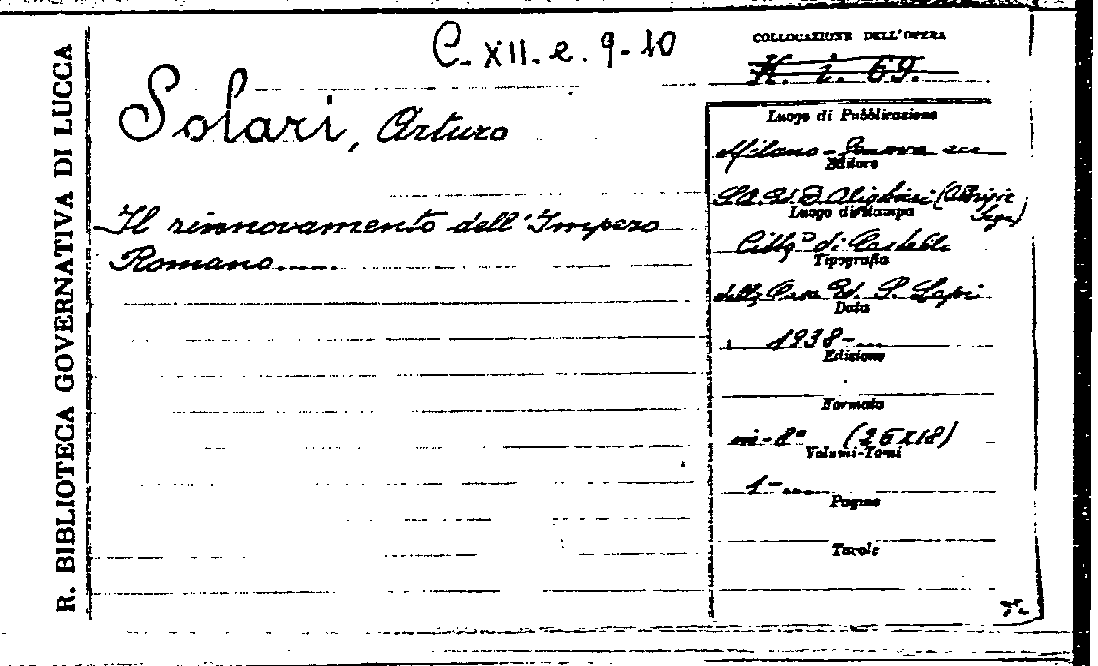 R. BIBLIOTECA GOVERNATIVA DI LUCCA
C. XII. e. 9-10
COLLOCAZIONE DELL'OPERA
K. i. 69.
Solari, Arturo
Il rinnovamento dell'Impero
Romano.....
Luogo di Pubblicazione
Milano - Genova ecc
Editore
S.A. Ed. D. Alighieri (Albrighi
Luogo di stampa
Città di Castello
Tipografia
della Casa Ed. S. Lapi
Data
1938-...
Edizione
Formato
in-8° (26x18)
Volumi-Tomi
1-....
Pagine
Tavole